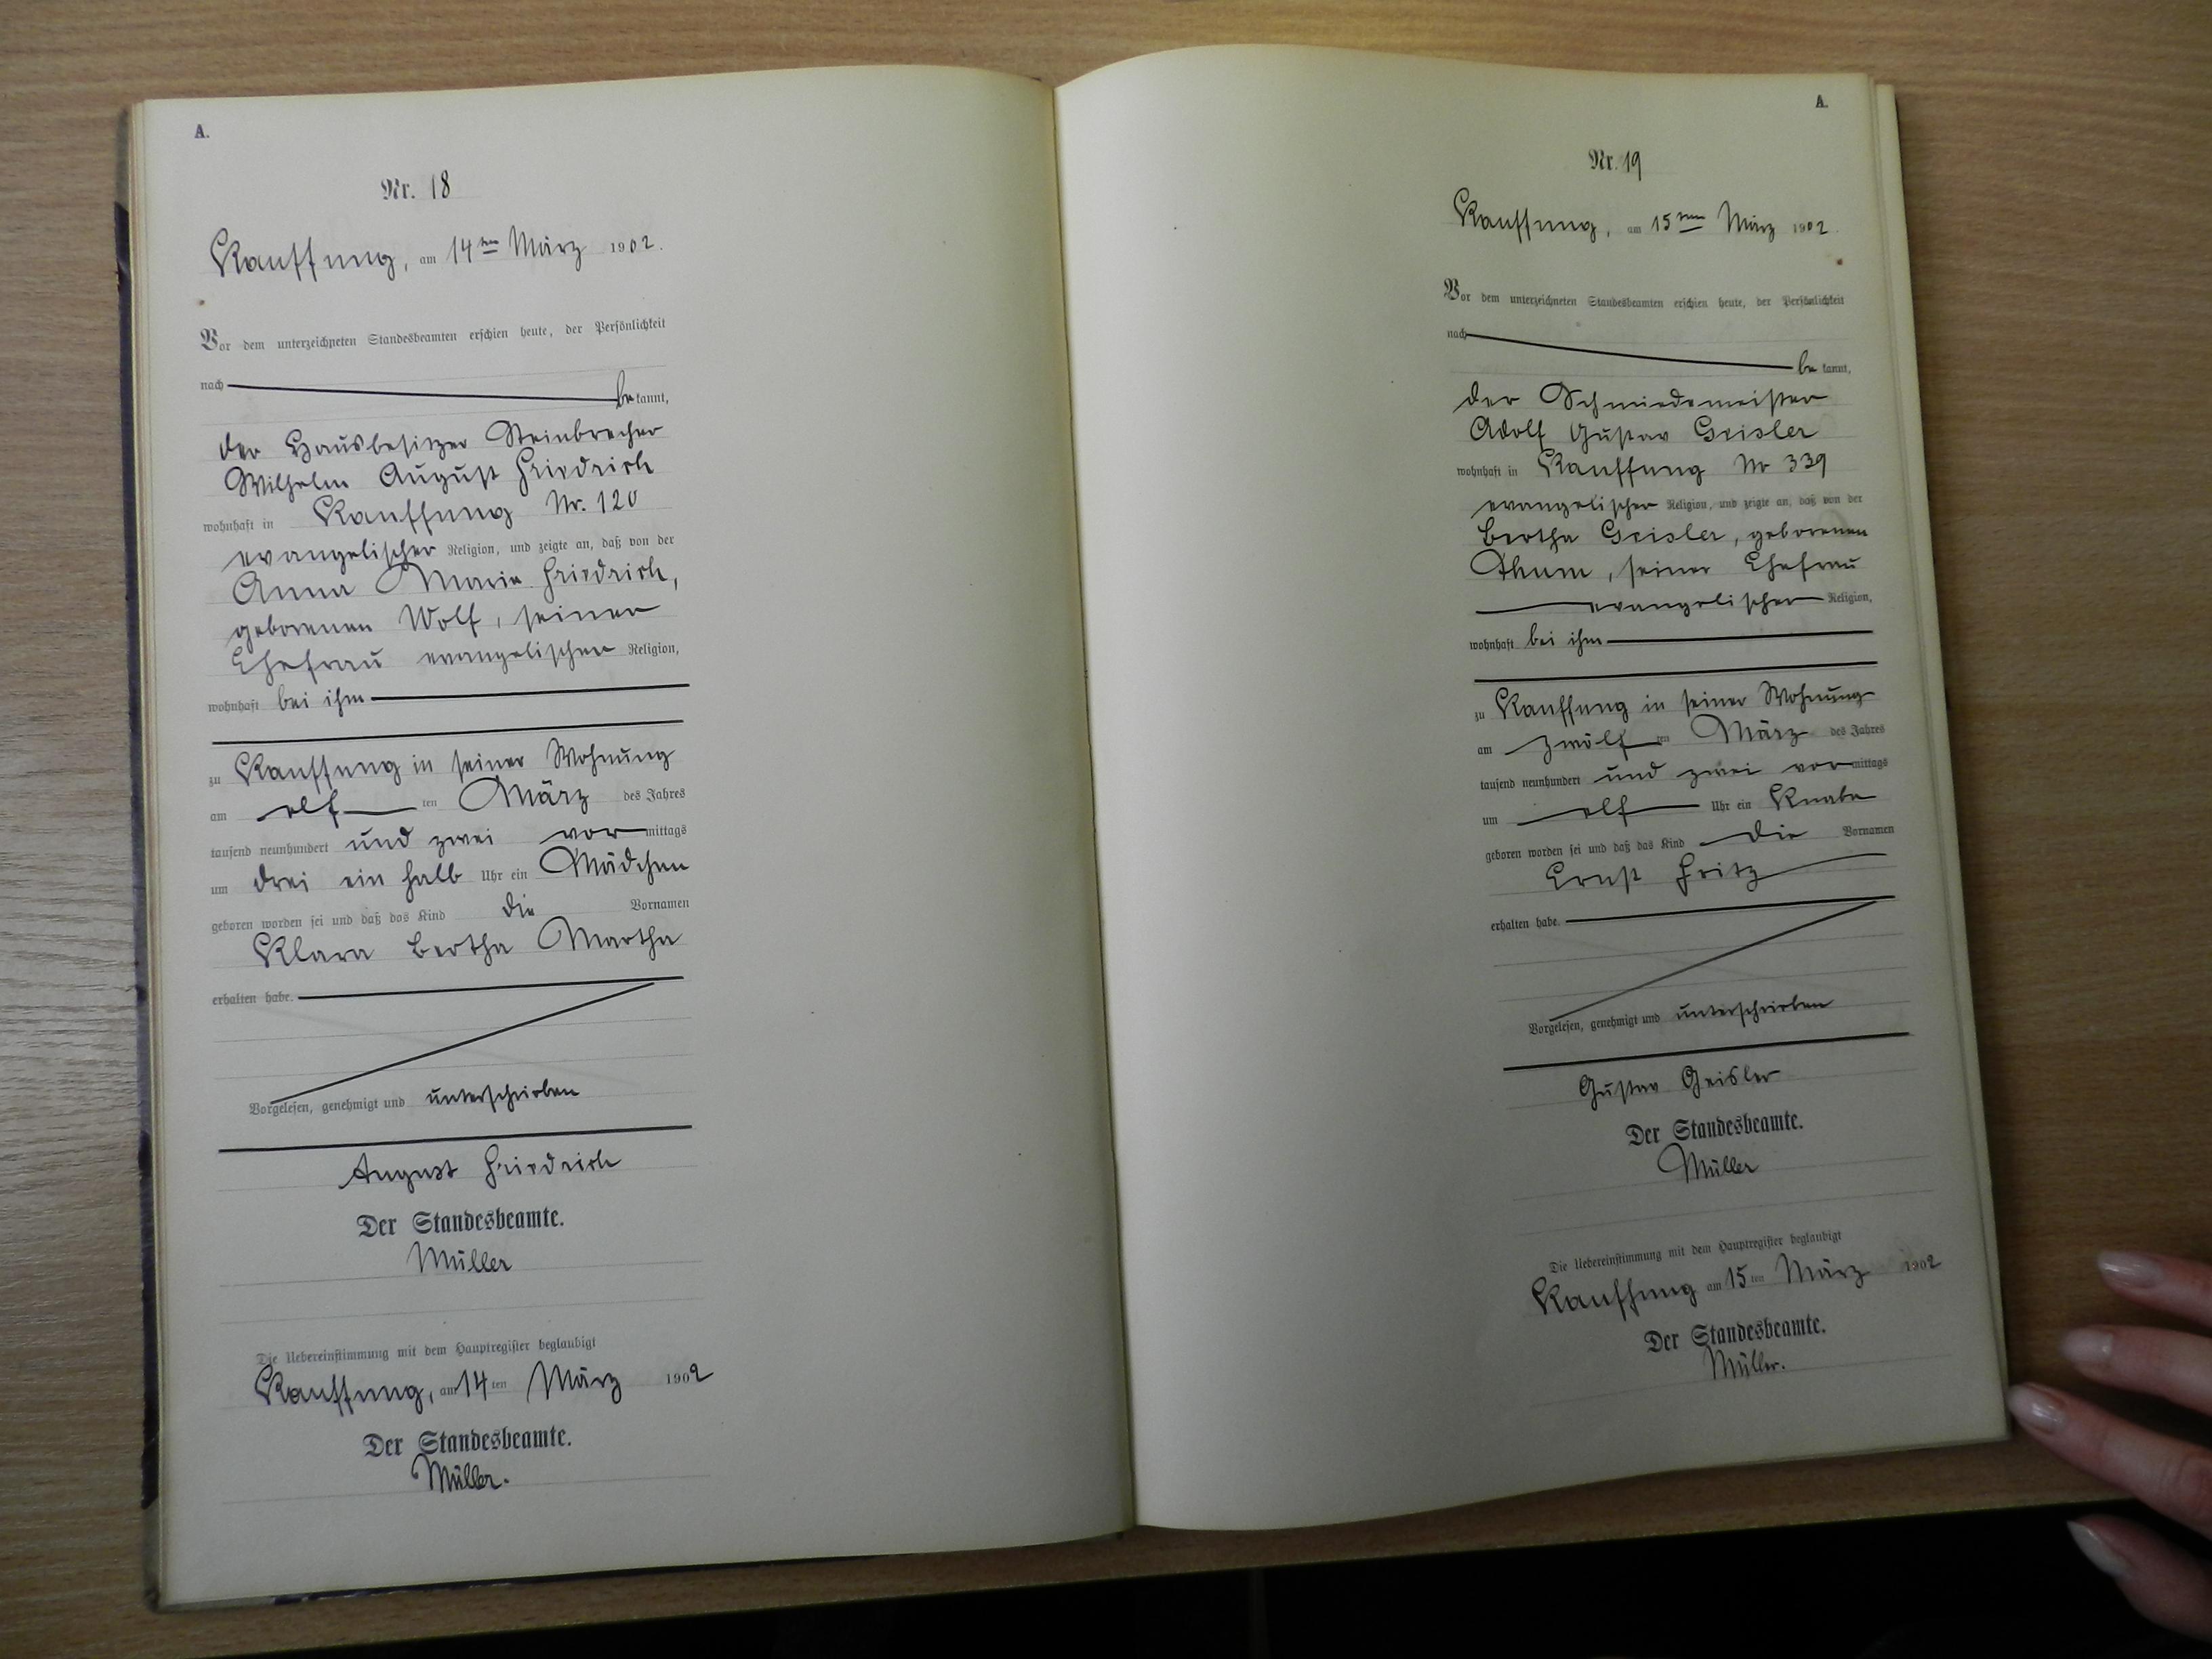 A.
Nr. 18
Kauffung, am 14ten März 1902.
Vor dem unterzeichneten Standesbeamten erschien heute, der Persönlichkeit
nach be kannt,
der Hausbesitzer Steinbrecher
Wilhelm August Friedrich
wohnhaft in Kauffung Nr. 120
evangelischer Religion, und zeigte an, daß von der
Anna Marie Friedrich,
geborenen Wolf, seiner
Ehefrau evangelischer Religion,
wohnhaft bei ihm
zu Kauffung in seiner Wohnung
am elf ten März des Jahres
tausend neunhundert und zwei vor mittags
um drei ein halb Uhr ein Mädchen
geboren worden sei und daß das Kind die Vornamen
Klara Bertha Martha
erhalten habe.
Vorgelesen, genehmigt und unterschrieben
August Friedrich
Der Standesbeamte.
Müller
Die Uebereinstimmung mit dem Hauptregister beglaubigt
Kauffung, am 14 ten März 1902
Der Standesbeamte.
Müller.
A.
Nr. 19
Kauffung, am 15ten März 1902.
Vor dem unterzeichneten Standesbeamten erschien heute, der Persönlichkeit
nach be kannt,
der Schmiedemeister
Adolf Gustav Geisler
wohnhaft in Kauffung Nr 339
evangelischer Religion, und zeigte an, daß von der
Bertha Geisler, geborenen
Thum, seiner Ehefrau
evangelischer Religion,
wohnhaft bei ihm
zu Kauffung in seiner Wohnung
am zwölf ten März des Jahres
tausend neunhundert und zwei vor mittags
um elf Uhr ein Knabe
geboren worden sei und daß das Kind die Vornamen
Ernst Fritz
erhalten habe.
Vorgelesen, genehmigt und unterschrieben
Gustav Geisler
Der Standesbeamte.
Müller
Die Uebereinstimmung mit dem Hauptregister beglaubigt
Kauffung am 15 ten März 1902
Der Standesbeamte.
Müller.